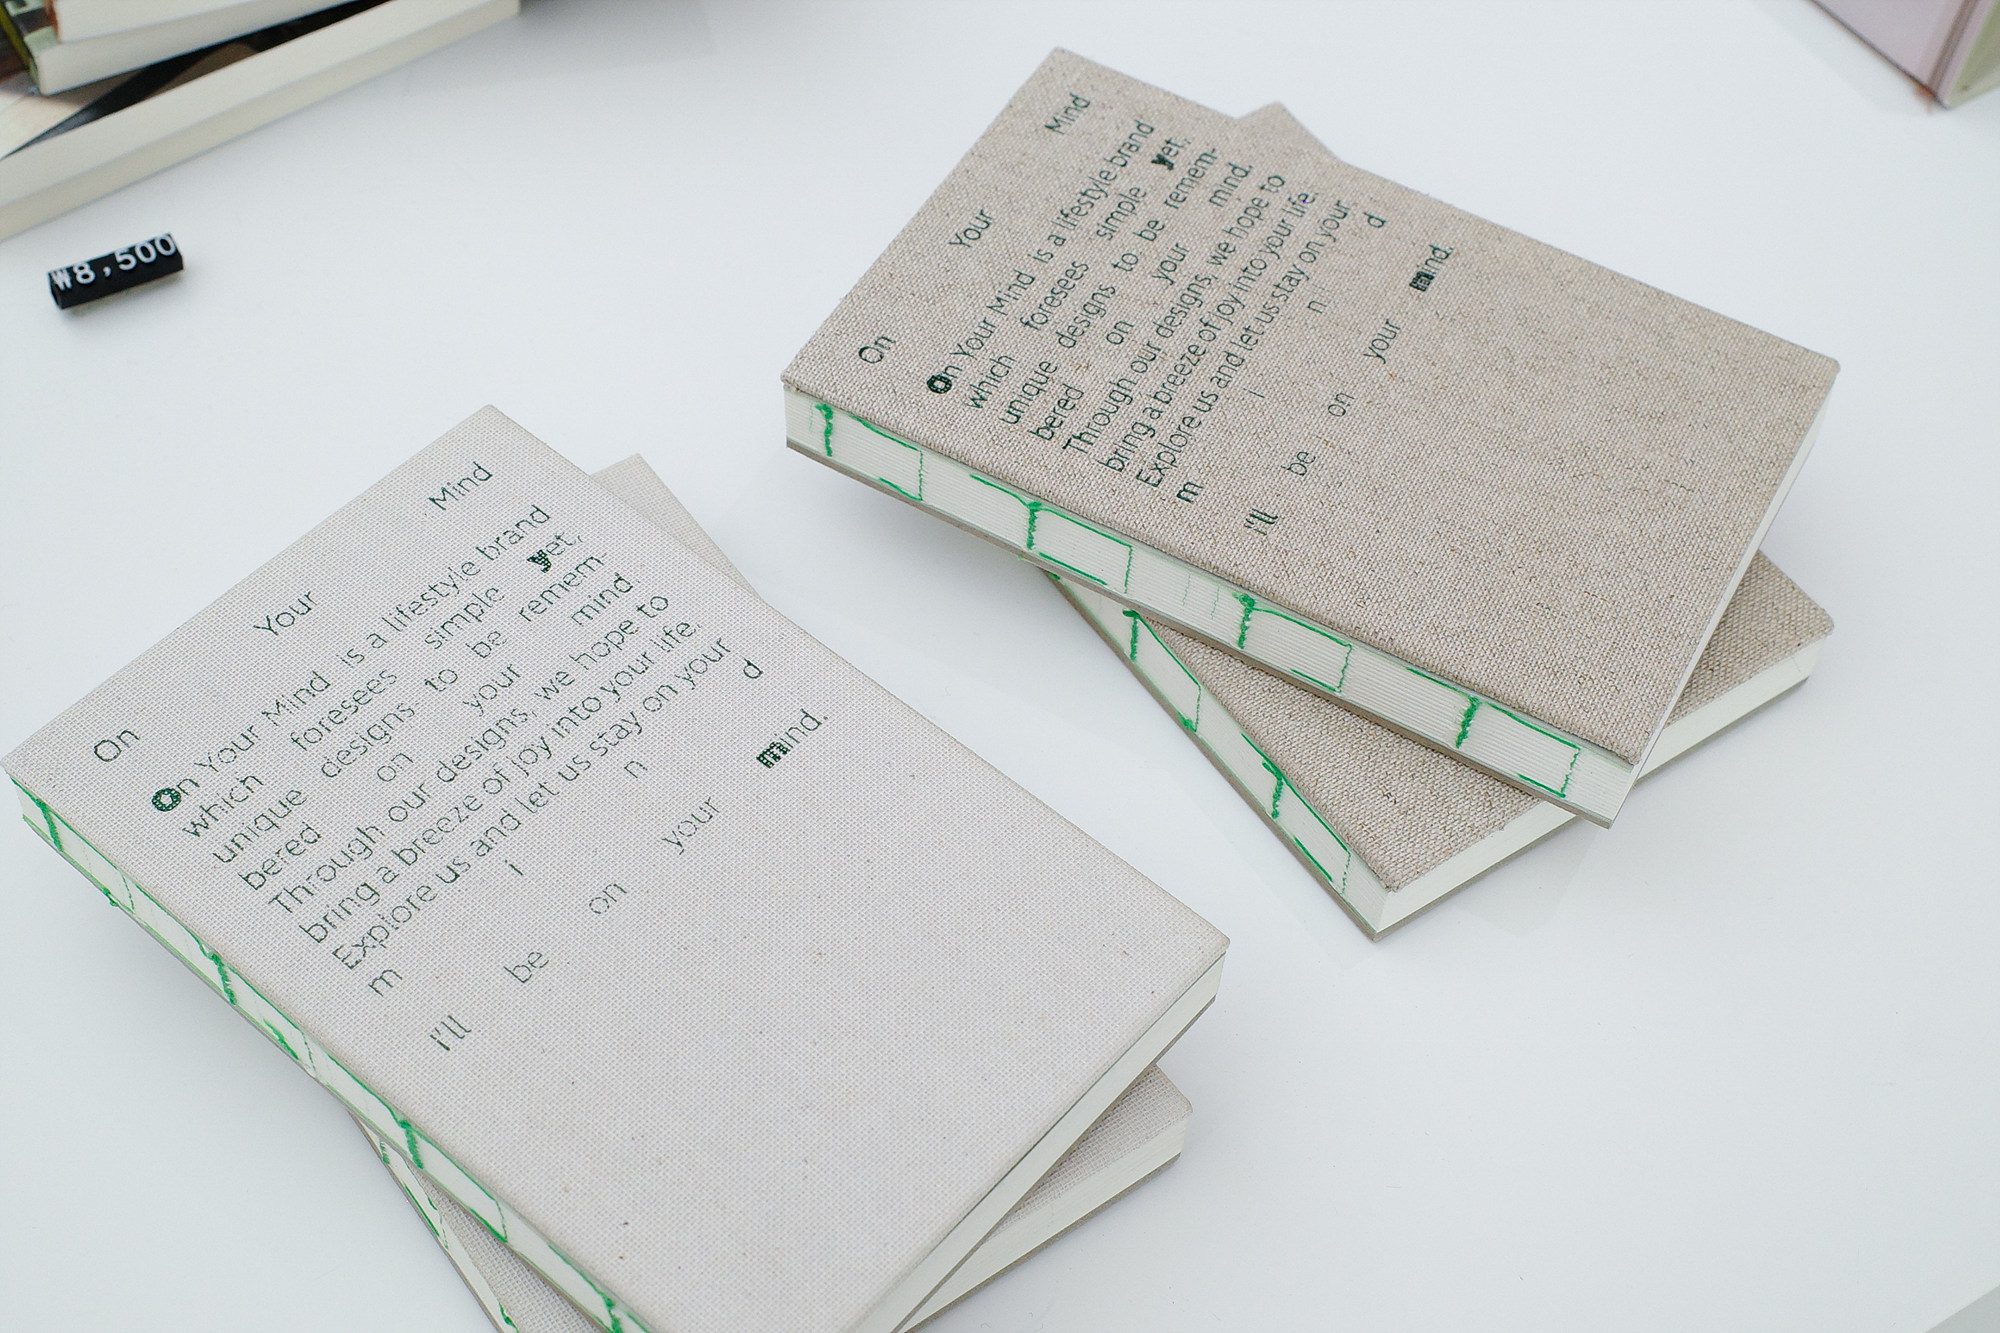 ₩8,500
On Your Mind
On Your Mind is a lifestyle brand
which foresees simple yet,
unique designs to be remem-
bered on your mind
Through our designs, we hope to
bring a breeze of joy into your life.
Explore us and let us stay on your
m i n d
i'll be on your mind.
On Your Mind
On Your Mind is a lifestyle brand
which foresees simple yet,
unique designs to be remem-
bered on your mind.
Through our designs, we hope to
bring a breeze of joy into your life.
Explore us and let us stay on your
m i n d
i'll be on your mind.